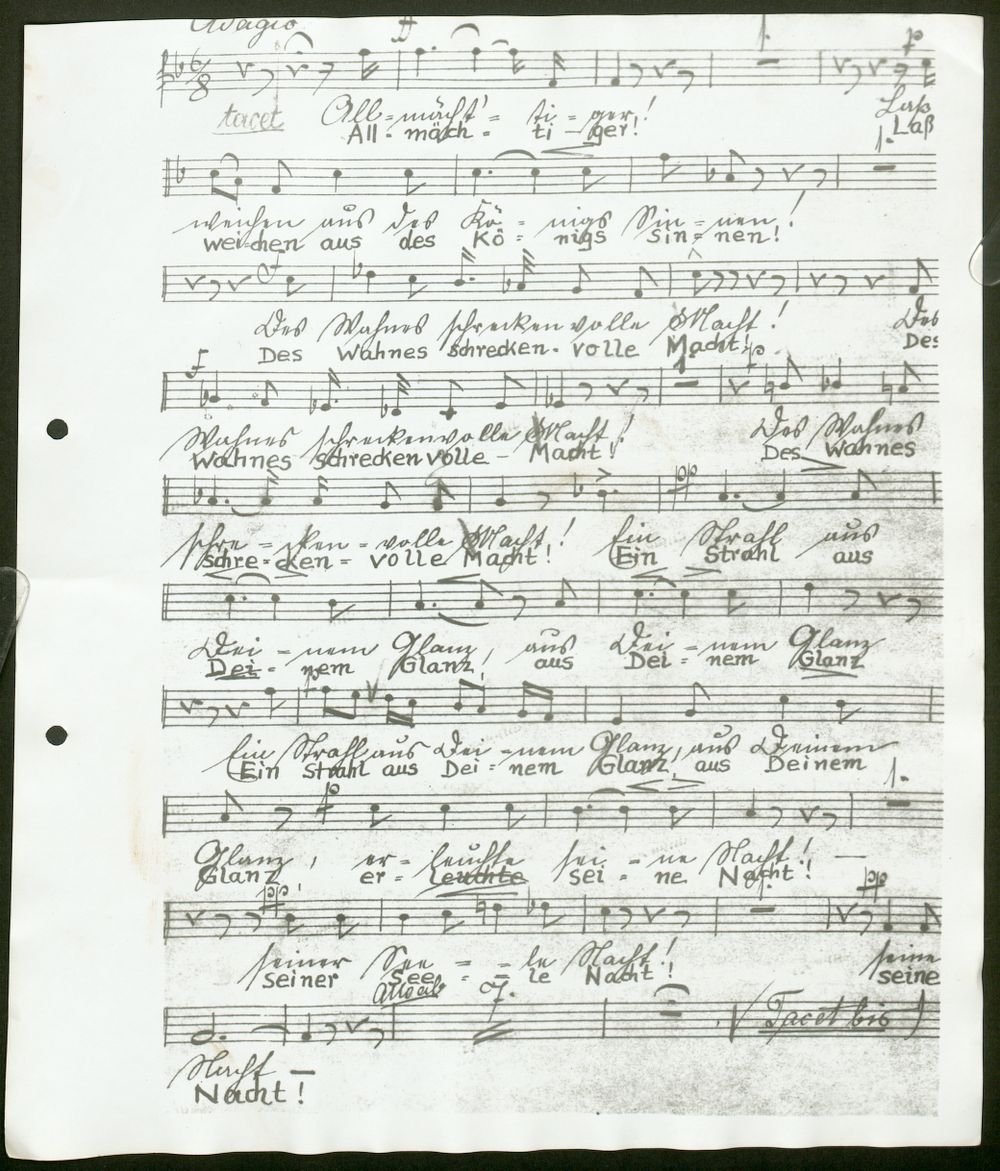 Adagio
ff
1.
p
tacet All=mächt'= ti = ger! Laß
All- mäch - ti - ger! Laß
1.
weichen aus des Kö = nigs Sin=nen!
wei=chen aus des Kö = nigs Sin=nen!
Des Wahnes schrecken volle Macht! Des
Des Wahnes schrecken- volle Macht! Des
f 1. p
Wahnes schreckenvolle Macht! Des Wahnes
Wahnes schrecken volle - Macht! Des Wahnes
pp
schre=cken=volle Macht! Ein Strahl aus
schre=cken= volle Macht! Ein Strahl aus
Dei=nem Glanz, aus Dei=nem Glanz
Dei=nem Glanz, aus Dei=nem Glanz
Ein Strahl aus Dei=nem Glanz, aus Deinem
Ein Strahl aus Dei=nem Glanz, aus Deinem
1.
Glanz, er=leuchte sei=ne Nacht! —
Glanz er=leuchte sei=ne Nacht!
pp 1. pp
seiner See = = le Nacht! seine
seiner See = = le Nacht! seine
7.
Tacet bis
Nacht —
Nacht!